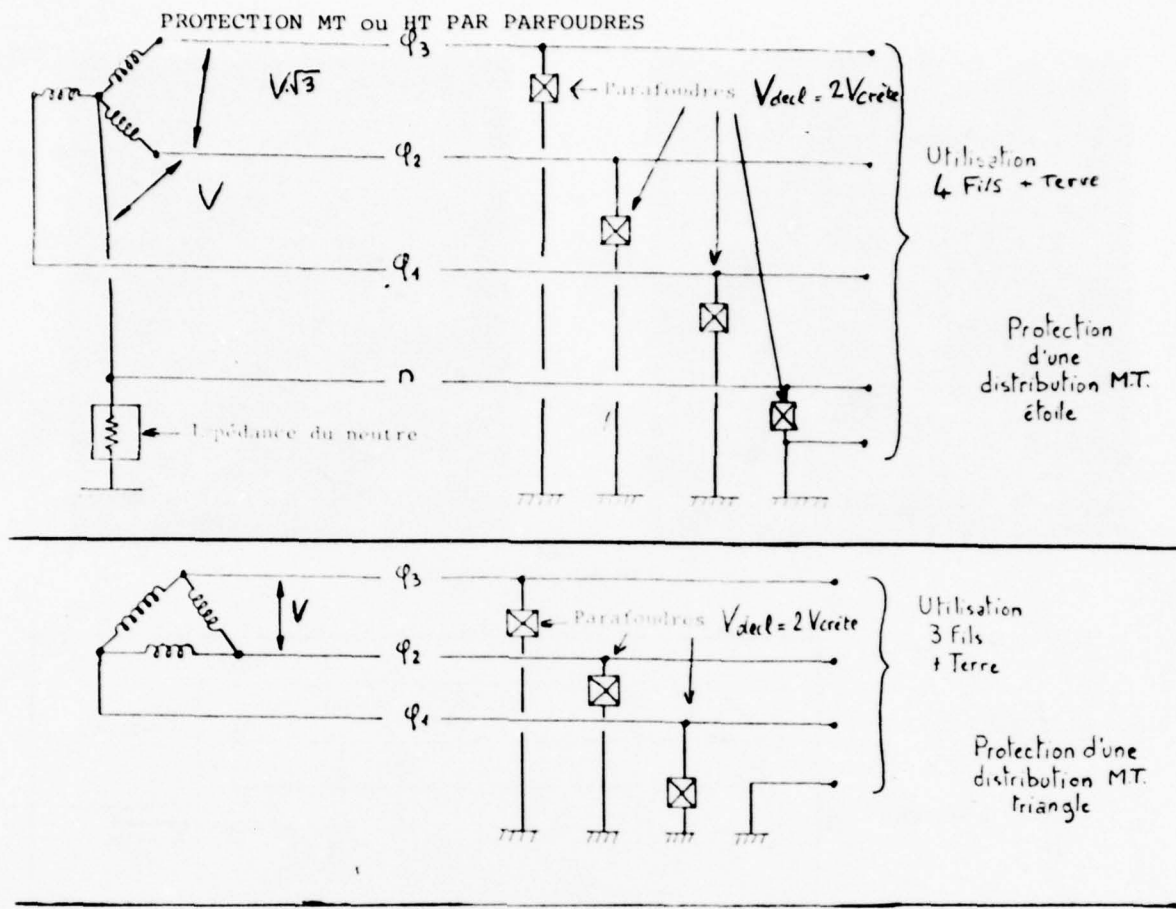 PROTECTION MT ou HT PAR PARFOUDRES
φ3
V√3
Parafoudres
Vdecl = 2 Vcrête
φ2
V
Utilisation
4 Fils + Terre
φ1
Protection
d'une
distribution M.T.
étoile
n
Impédance du neutre
φ3
V
Parafoudres
Vdecl = 2 Vcrète
Utilisation
3 Fils
+ Terre
φ2
φ1
Protection d'une
distribution M.T.
triangle